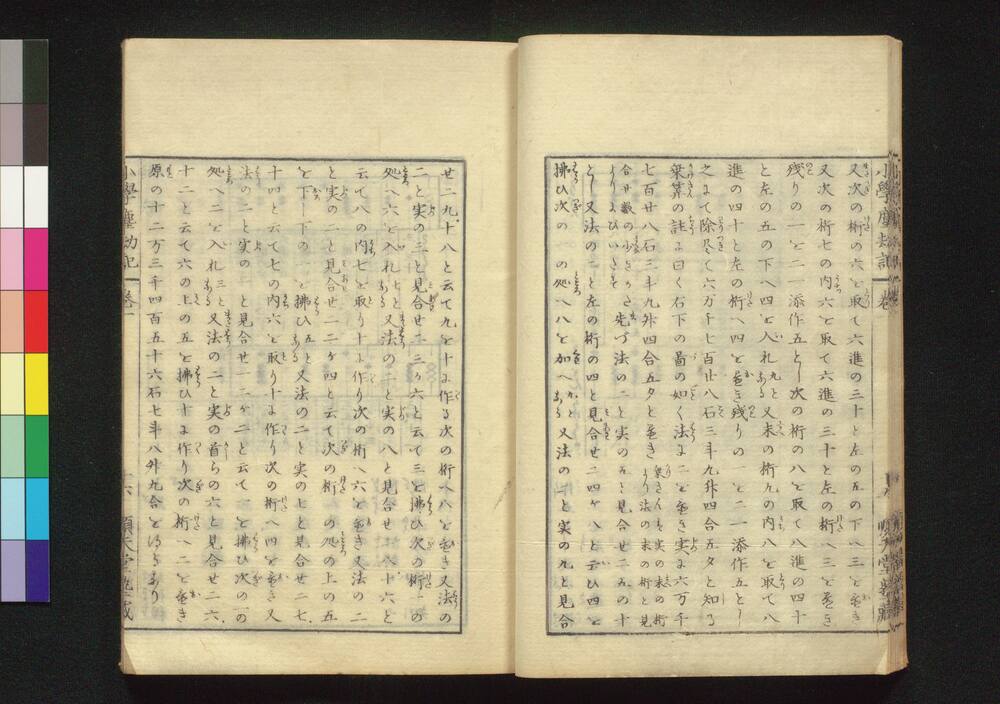 又次の桁の六を取て六進の三十と左の五の下へ三を置き
又次の桁七の内六を取て六進の三十と左の桁へ三を置き
残りの一を二一添作五とし次の桁の八を取て八進の四十
と左の五の下へ四を入れ九と又末の桁九の内八を取て八
進の四十と左の桁へ四を置き残りの一を二一添作五とし
之にて除尽て六万千七百廿八石三斗九升四合五夕と知る
乗算の註に曰く右下の啚の如く法に二を置き実に六万千
七百廿八石三斗九升四合五夕と置き
先づ法の二と実の五と見合せ二五の十
とし又法の二と左の桁の四と見合せ二四ヶ八と云ひ四を
拂ひ次の一の処へ八を加へ 又法の二と実の九と見合
せ二九十八と云て九を十に作る次の桁へ八を置き又法の
二と実の三と見合せ二三ヶ六と云て三を拂ひ次の桁一の
処へ六を入れ七と 又法の二と実の八と見合せ二八十六と
云て八の内七を取り十に作り次の桁へ六を置き又法の二
と実の二と見合せ二二ヶ四と云て次の桁一の処の上の五
を下し下の一を拂ひ五と 又法の二と実の七と見合せ二七
十四と云て七の内六を取り十に作り次の桁へ四を置き又
法の二と実の一と見合せ一二ヶ二と云て一を拂ひ次の一の
処へ二を入れ三と 又法の二と実の首らの六と見合せ二六
十二と云て六の上の五を拂ひ十に作り次の桁へ二を置き
原の十二万三千四百五十六石七斗八升九合を得るあり
小學塵劫記 卷一
十六 順天堂塾藏